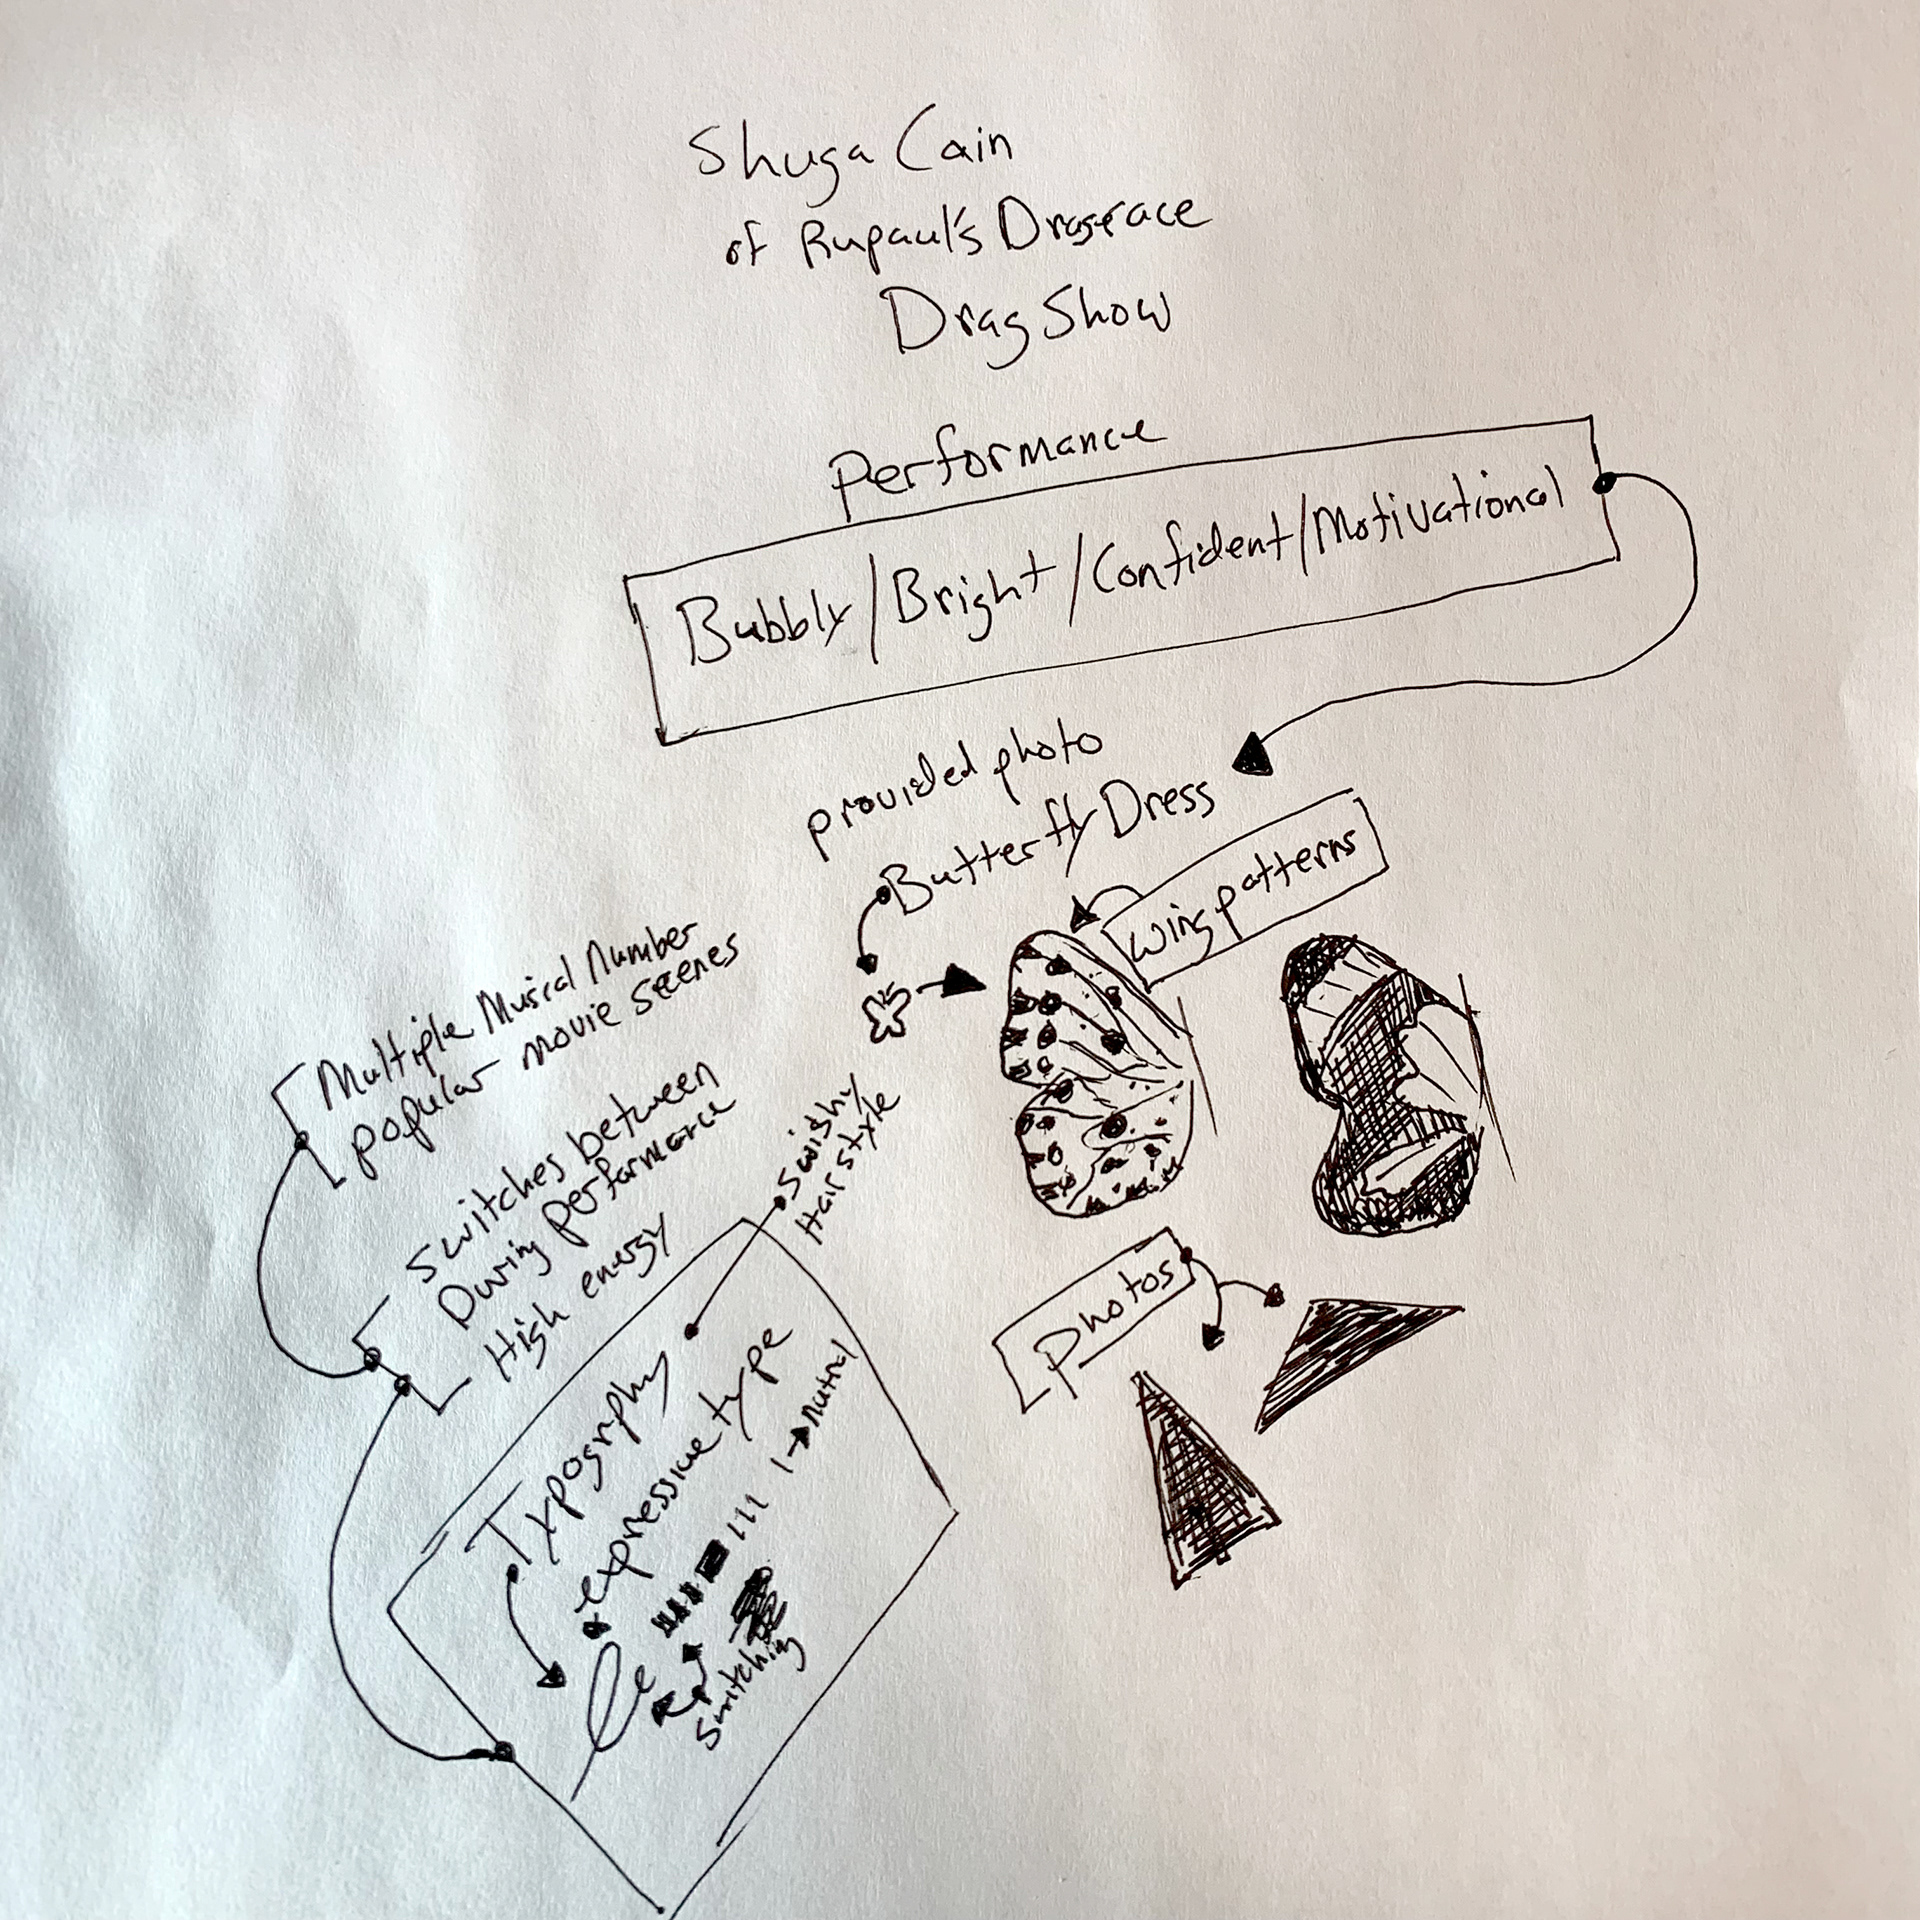 Shuga Cain
of Rupaul's Dragrace
Drag Show
Performance
Bubbly/Bright/Confident/Motivational
provided photo
Butterfly Dress
wing patterns
Multiple Musical Number
popular movie scenes
switches between
During performance
High energy
swishy
Hair style
Photos
Typogrphy
expressive type
→ nutral
switching